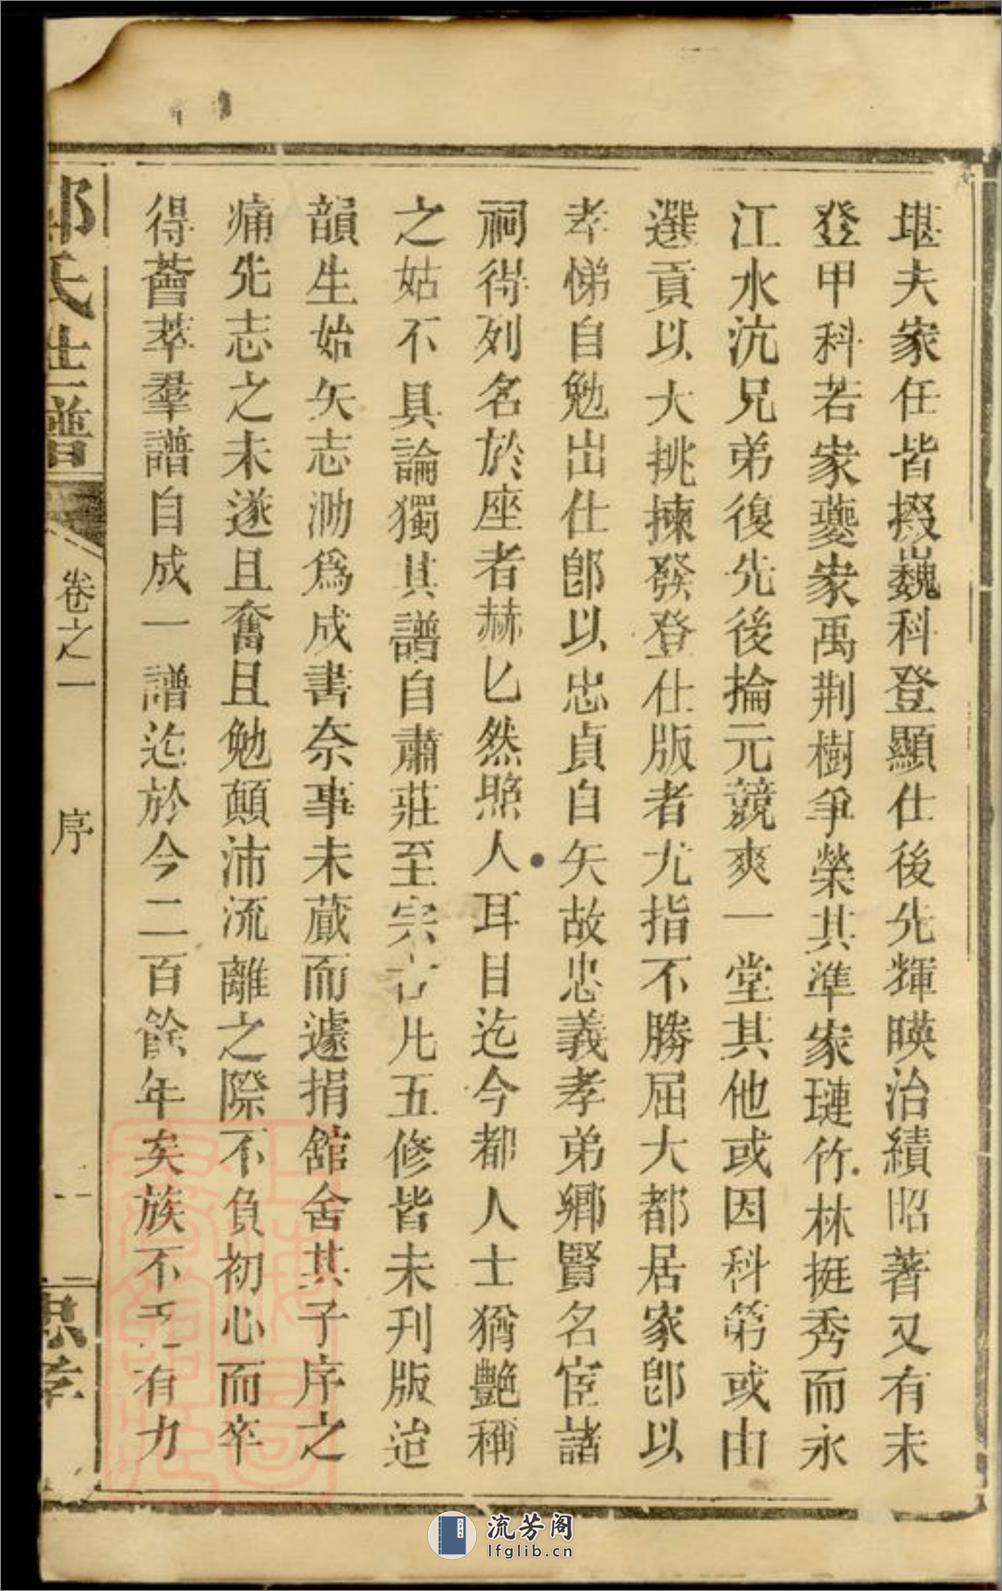 堪夫家任皆掇巍科登顯仕後先輝暎治績昭著又有未
登甲科若家夔家禹荆樹爭榮其準家璉竹林挺秀而永
江水沆兄弟復先後掄元競爽一堂其他或因科第或由
選貢以大挑揀發登仕版者尤指不勝屈大都居家卽以
孝悌自勉出仕卽以忠貞自矢故忠義孝弟鄉賢名宦諸
祠得列名於座者赫匕然照人耳目迄今都人士猶艷稱
之姑不具論獨其譜自肅莊至宗凡五修皆未刋版迨
韻生始矢志泐爲成書奈事未蕆而遽捐舘舍其子序之
痛先志之未遂且奮且勉顛沛流離之際不負初心而卒
得薈萃羣譜自成一譜迄於今二百餘年矣族不有力
氏世譜
卷之一
序
二
忠孝
流芳阁
lfglib.cn